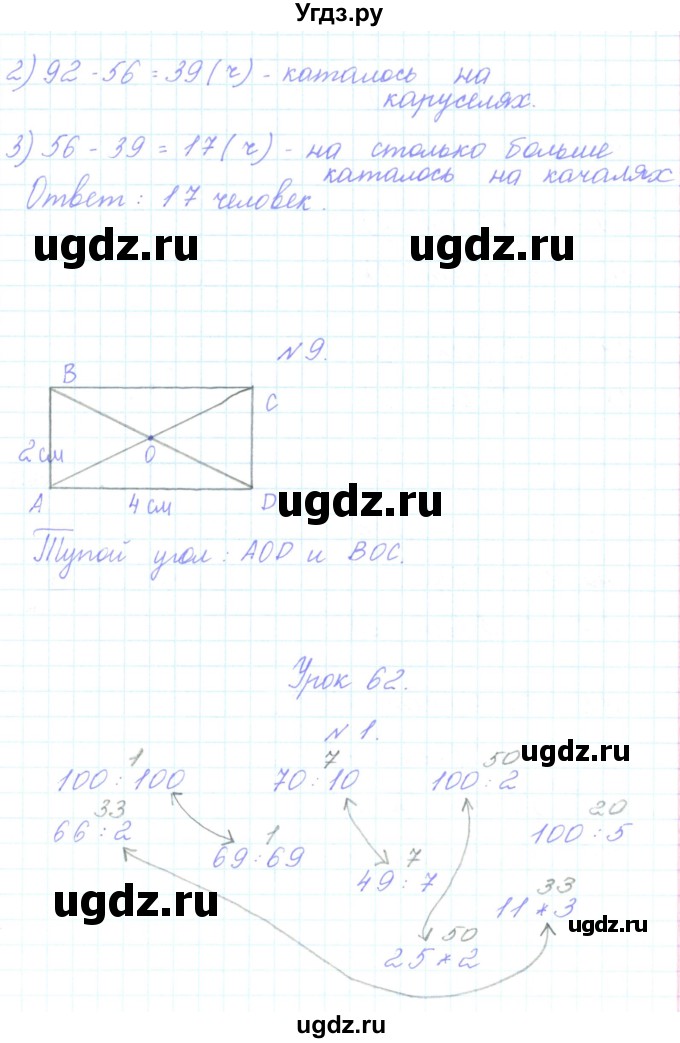 Угдз.ру
2) 92 - 56 = 39 (ч) - каталось на
каруселях.
3) 56 - 39 = 17 (ч) - на столько больше
каталось на качалях
Ответ: 17 человек.
ugdz.ru ugdz.ru
№ 9.
B
C
2 см
O
A 4 см D
ugdz.ru
Тупой угол: AOD и BOC.
Урок 62.
№ 1.
ugdz.ru
1 7 50
100 : 100 70 : 10 100 : 2
33 20
66 : 2 100 : 5
1
69 : 69
7
49 : 7
33
11 * 3
ugdz.ru ugdz.ru
50
25 * 2
ugdz.ru